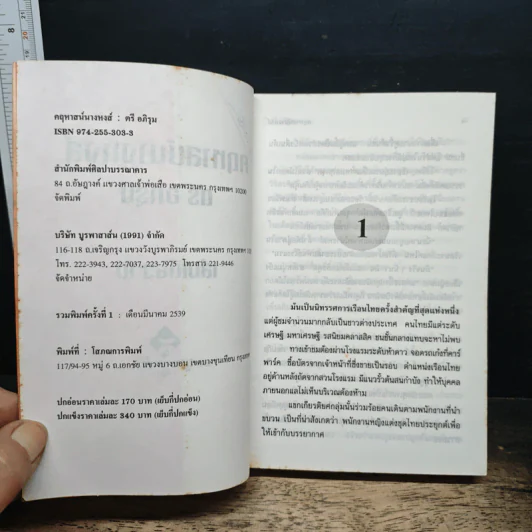 คฤหาสน์นางหงส์ : ตรี อภิรุม
ISBN 974-255-303-3
สำนักพิมพ์ศิลปาบรรณาคาร
84 ถ.อัษฎางค์ แขวงศาลเจ้าพ่อเสือ เขตพระนคร กรุงเทพฯ 10200
จัดพิมพ์
บริษัท บูรพาสาส์น (1991) จำกัด
116-118 ถ.เจริญกรุง แขวงวังบูรพาภิรมย์ เขตพระนคร กรุงเทพฯ
โทร. 222-3943, 222-7037, 223-7975 โทรสาร 221-9446
จัดจำหน่าย
รวมพิมพ์ครั้งที่ 1 : เดือนมีนาคม 2539
พิมพ์ที่ : โสภณการพิมพ์
117/94-95 หมู่ 6 ถ.เอกชัย แขวงบางบอน เขตบางขุนเทียน กรุงเทพฯ
ปกอ่อนราคาเล่มละ 170 บาท (เย็บกี่ปกอ่อน)
ปกแข็งราคาเล่มละ 340 บาท (เย็บกี่ปกแข็ง)
1
มันเป็นนิทรรศการเรือนไทยครั้งสำคัญที่สุดแห่งหนึ่ง
แต่ผู้ชมจำนวนมากกลับเป็นชาวต่างประเทศ คนไทยมีแต่ระดับ
เศรษฐี มหาเศรษฐี รสนิยมคลาสสิค ชนชั้นกลางแทบจะหาไม่พบ
ทางเข้าชมต้องผ่านโรงแรมระดับห้าดาว จอดรถเก๋งที่คาร์
พาร์ค ซื้อบัตรจากเจ้าหน้าที่ซึ่งขายเป็นรอบ ตำแหน่งเรือนไทย
อยู่ด้านหลังถัดจากสวนโรงแรม มีแนวรั้วต้นสนกำบัง ทำให้บุคคล
ภายนอกแลไม่เห็นบริเวณต้องห้าม
แขกเกียรติยศกลุ่มนั้นร่วมร้อยคนเดินตามพนักงานที่นำ
ขบวน เป็นที่น่าสังเกตว่า พนักงานหญิงแต่งชุดไทยประยุกต์เพื่อ
ให้เข้ากับบรรยากาศ